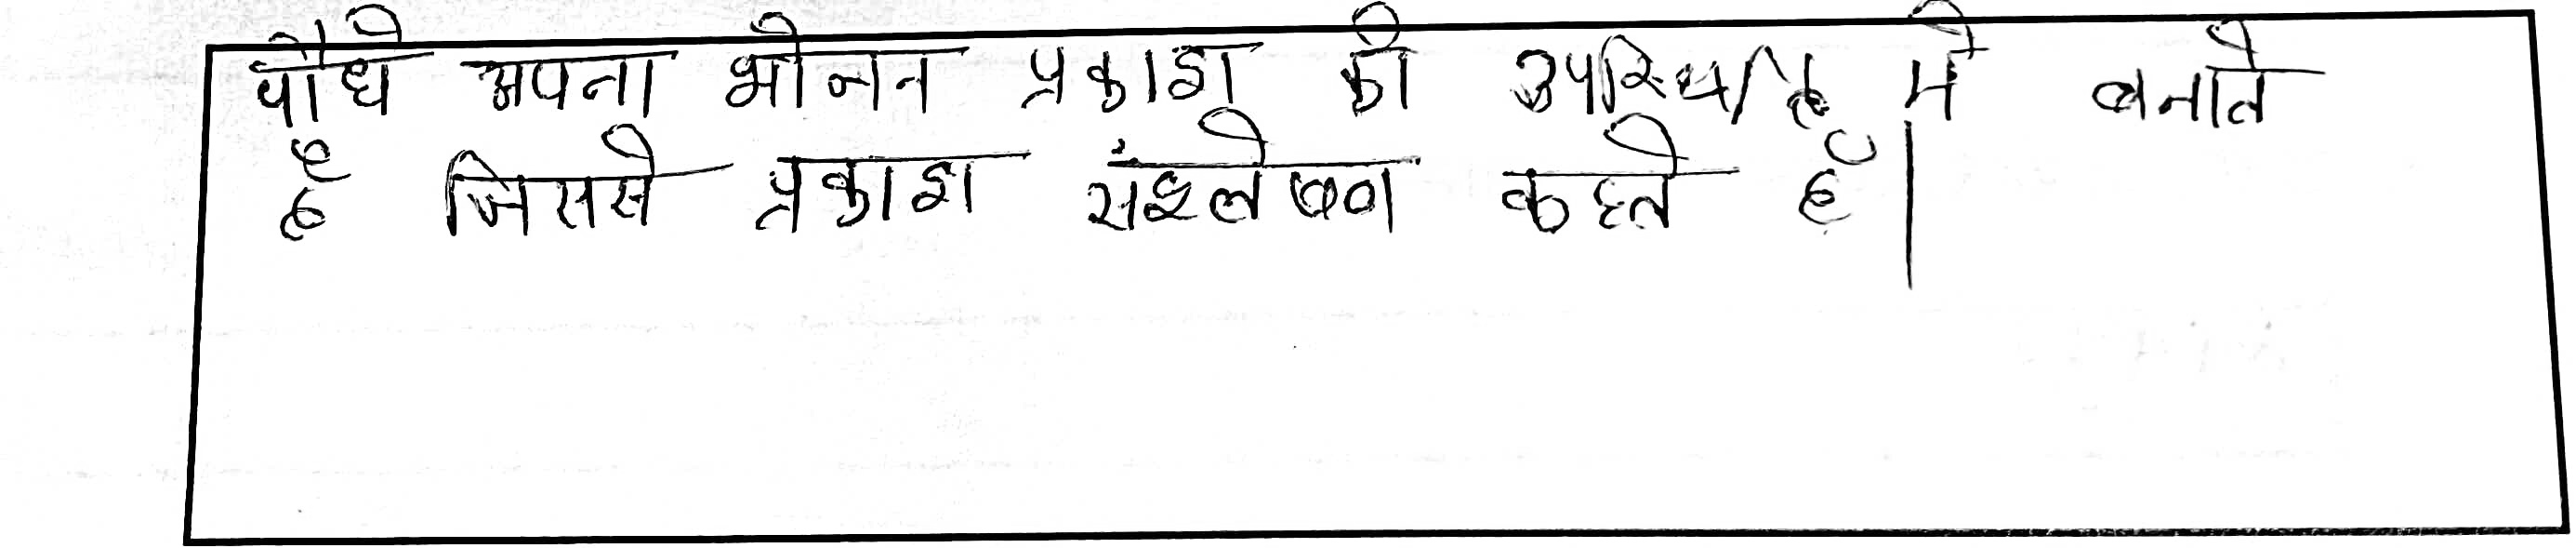 पौधे अपना भोजन प्रकाश की उपस्थिति में बनाते
है जिससे प्रकाश संश्लेषण कहते हैं।